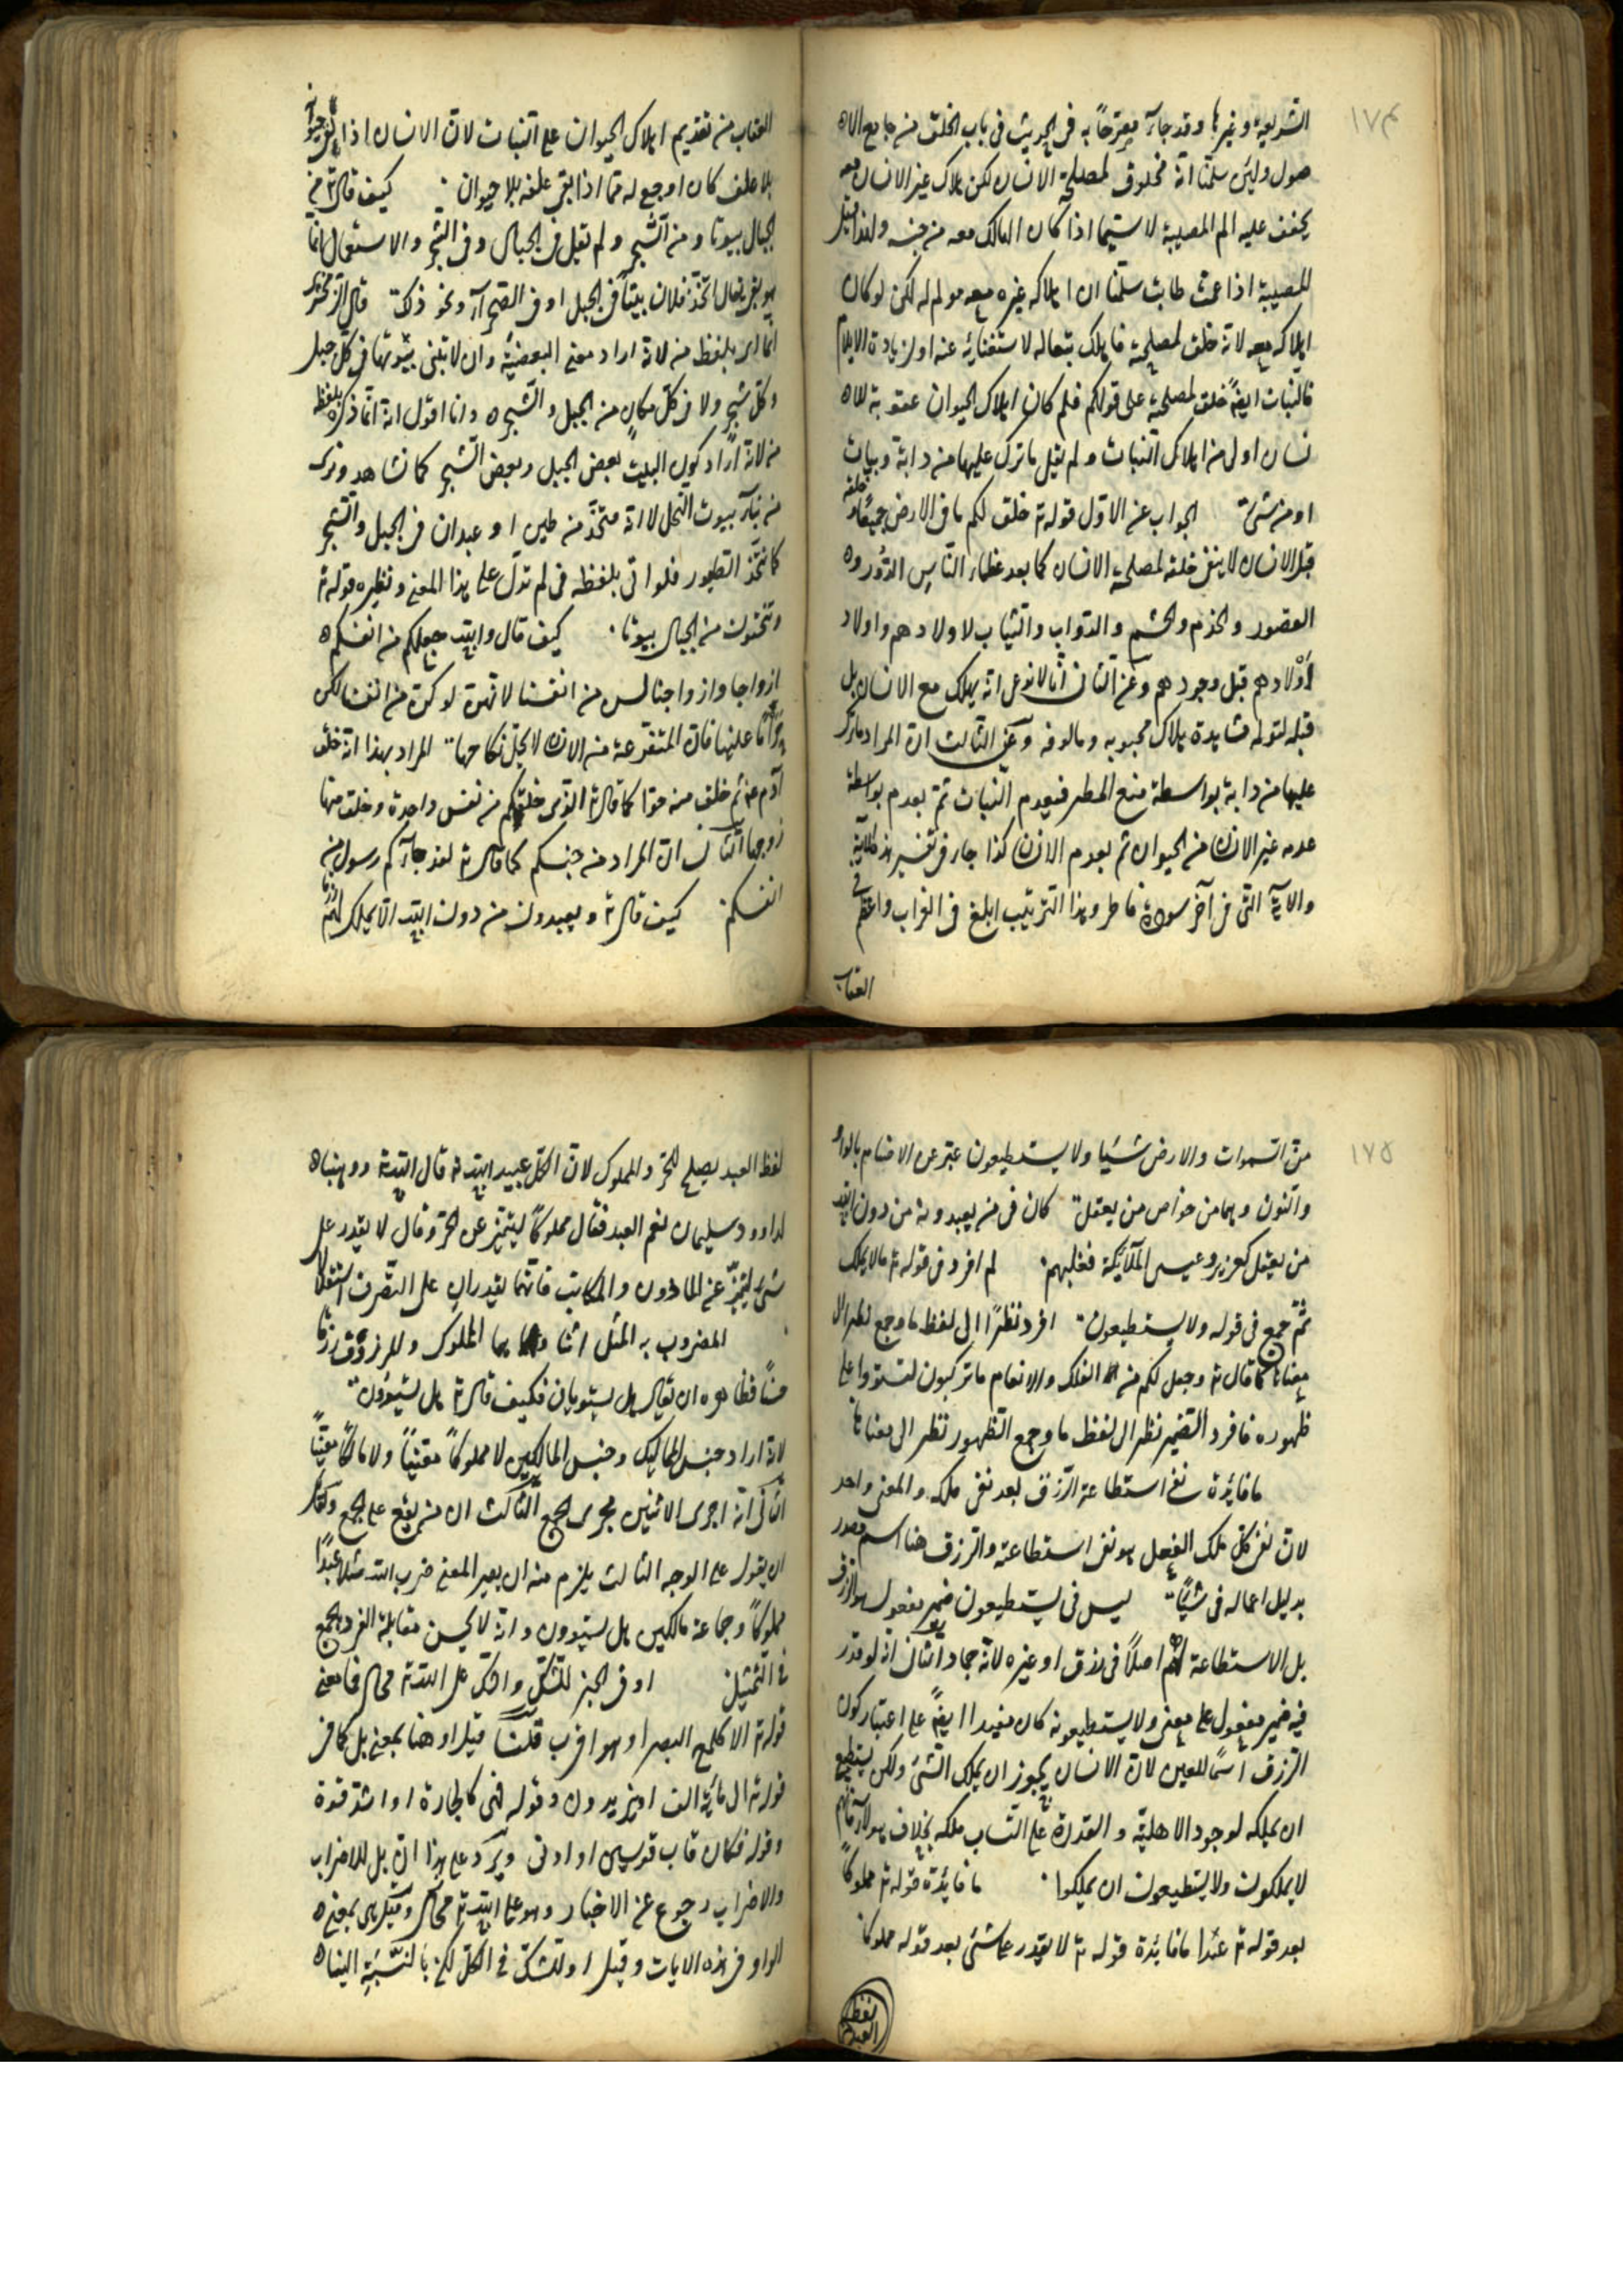 ١٧٤
الشريعة وغيرها وقد جاء مصرحا به في الحديث في باب الخلق من جامع الاه
صول ولئن سلمنا انه مخلوق لمصلحة الانسان لكن هلاك غير الانسان معه
يخفف عليه الم المصيبة لا سيما اذا كان الهالك معه من جنسه ولهذا قيل
المصيبة اذا عمت طابت سلمنا ان اهلاكه غيره معه مولم له لكن لو كان
اهلاكه معه لانه خلق لمصلحته فاهلك بتعاله لاستغنائه عنه او لزيادة الايلام
فالنبات ايضا خلق لمصلحته على قولكم فلم كان اهلاك الحيوان عقوبة للاه
نسان اولى من اهلاك النبات ولم يقل ما ترك عليها من دابة ونبات
او من شئ الجواب عن الاول قوله تع خلق لكم ما في الارض جميعا وخلقه
قبل الانسان لا ينفي خلقه لمصلحة الانسان كما يعد عظماء الناس الدور وه
القصور والخدم والحشم والدواب والثياب لاولادهم واولاد
اولادهم قبل وجودهم وعن الثاني انا لا ندعي انه يهلك مع الانسان بل
قبله لتوله مشاهدة هلاك محبوبه ومالوفه وعن الثالث ان المراد ما ترك
عليها من دابة بواسطة منع المطر فيعدم النبات ثم يعدم بواسطة
عدمه غير الانسان من الحيوان ثم يعدم الانسان كذا جاء في تفسير هذه الآية
والآية التي في آخر سورة فاطر وهذا الترتيب ابلغ في العذاب واعظم في
العقاب
العقاب من تقديم اهلاك الحيوان على النبات لان الانسان اذا بقي حيوانه
بلا علف كان اوجع له مما اذا بقي علفه بلا حيوان كيف قال تع من
الجبال بيوتا ومن الشجر ولم يقل في الجبال وفي الشجر والاستعمال انما
هو بفي يقال اتخذ فلان بيتا في الجبل او في الصحراء ونحو ذلك قال الزمخشري
انما اتى بلفظ من لانه اراد معنى البعضية وان لا تبنى بيوتها في كل جبل
وكل شجر ولا في كل مكان من الجبل والشجره وانا اقول انه انما ذكره بلفظة
من لانه اراد كون البيت بعض الجبل وبعض الشجر كما نشاهد ونرى
من بناء بيوت النحل لا انه متخذ من طين او عيدان في الجبل والشجر
كما تتخذ الطيور فلو اتى بلفظه في لم تدل على هذا المعنى ونظيره قوله تع
وتنحتون من الجبال بيوتا كيف قال والله جعل لكم من انفسكم
ازواجا وازواجنا ليس من انفسنا لانهن لو كن من انفسنا لكن
حراما علينا فان المتفرعة من الانسان لا يحل نكاحها المراد بهذا انه خلق
آدم ع م ثم خلق منه حوا كما قال تع الذي خلقكم من نفس واحدة وخلق منها
زوجها الثاني ان المراد من جنسكم كما قال تع لقد جاءكم رسول من
انفسكم كيف قال تع ويعبدون من دون الله ما لا يملك لهم رزقا
١٧٥
من السموات والارض شيئا ولا يستطيعون عبر عن الاصنام بالواو
والنون وهما من خواص من يعقل كان في من يعبدونه من دون الله
من يعقل كعزير وعيسى والملائكة فغلبهم لم افرد في قوله تع ما لا يملك
ثم جمع في قوله ولا يستطيعون افرد نظرا الى لفظ ما وجمع نظرا الا
معناها كما قال تع وجعل لكم من الفلك والانعام ما تركبون لتستووا على
ظهوره فافرد الضمير نظرا الى لفظ ما وجمع الظهور نظرا الى معناها
ما فائدة نفي استطاعة الرزق بعد نفي ملكه والمعنى واحد
لان نفي ملك الفعل هو نفي استطاعته والرزق هنا اسم مصدر
بدليل اعماله في شيئا ليس في يستطيعون ضمير مفعول هو الرزق
بل الاستطاعة لهم اصلا في رزق او غيره لانه جماد الثاني انه لو قدر
فيه ضمير مفعول على معنى ولا يستطيعونه كان مفيدا ايضا على اعتبار كون
الرزق اسما للعين لان الانسان يجوز ان يملك الشئ ولكن يستطيع
ان يملكه لوجود الاهلية والقدرة على اكتساب ملكه بخلاف هولاء فانهم
لا يملكون ولا يستطيعون ان يملكوا ما فائدة قوله تع مملوكا
بعد قوله تع عبدا ما فائدة قوله تع لا يقدر على شئ بعد قوله مملوكا
لفظ العبد
لفظ العبد يصلح للحر والمملوك لان الكل عبيد الله تع قال الله تع ووهبناه
لداوود سليمان نعم العبد فقال مملوكا ليتميز عن الحر وقال لا يقدر على
شئ ليتميز عن الماذون والمكاتب فانهما يقدران على التصرف استقلالا
المضروب به المثل اثنان وهما المملوك والمرزوق رزقا
حسنا فظاهره ان يقال هل يستويان فكيف قال تع هل يستوون
لانه اراد جنس المماليك وجنس المالكين لا مملوكا معينا ولا مالكا معينا
الثاني انه اجرى الاثنين مجرى الجمع الثالث ان من يقع على الجمع ولقائل
ان يقول على الوجه الثالث يلزم منه ان يصير المعنى ضرب الله مثلا عبدا
مملوكا وجماعة مالكين هل يستوون وانه لا يحسن مقابلة الفرد بالجمع
في التمثيل او في الخبر للشك والشك على الله تع محال فما معنى
قوله تع الا كلمح البصر او هو اقرب قلنا قيل او هنا بمعنى بل كما في
قوله تع الى مائة الف او يزيدون وقوله فهي كالحجارة او اشد قسوة
وقوله فكان قاب قوسين او ادنى ويرد على هذا ان بل للاضراب
والاضراب رجوع عن الاخبار وهو على الله تع محال وقيل هي بمعنى ه
الواو في هذه الايات وقيل او للشك في الكل لكن بالنسبة الينا ه